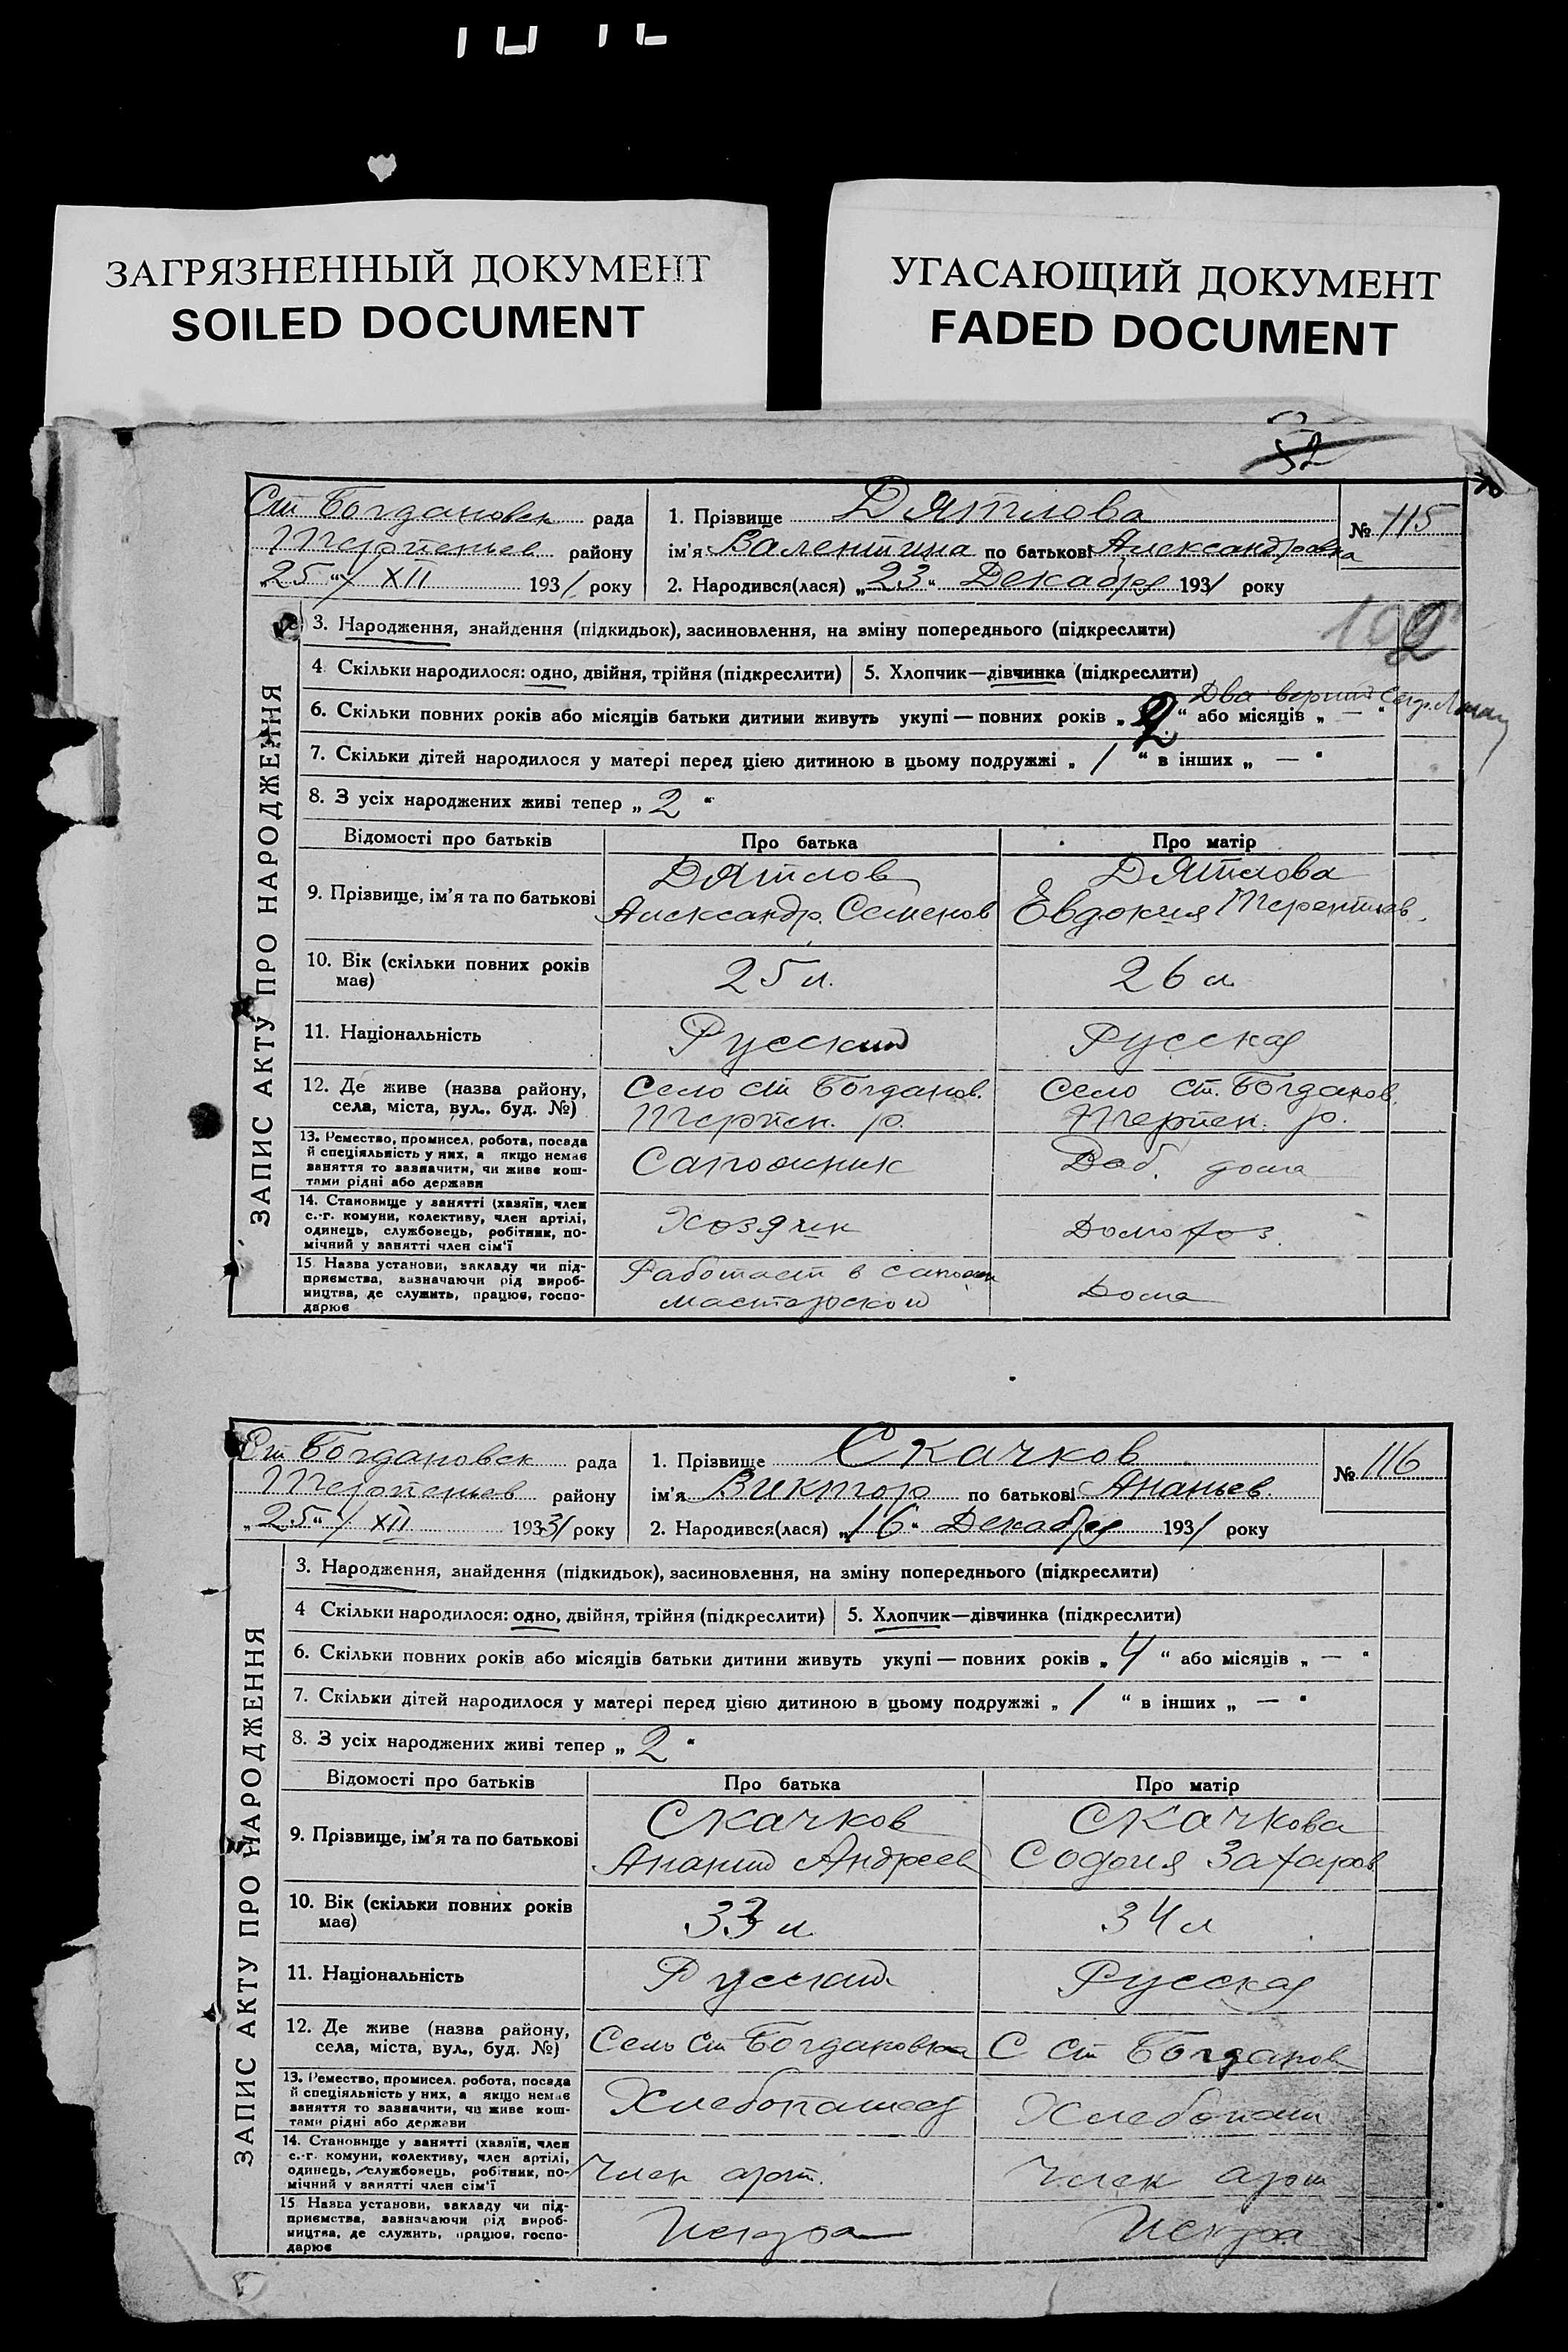 ЗАГРЯЗНЕННЫЙ ДОКУМЕНТ
SOILED DOCUMENT
УГАСАЮЩИЙ ДОКУМЕНТ
FADED DOCUMENT
52
Ст Богдановск рада
Терпеньев району
„25“/ XII 1931 року
1. Прізвище Дятлова
ім'я Валентина по батькові Александровна
2. Народився(лася) „23“ Декабря 1931 року
№ 115
102
ЗАПИС АКТУ ПРО НАРОДЖЕННЯ
3. Народження, знайдення (підкидьок), засиновлення, на зміну попереднього (підкреслити)
4 Скільки народилося: одно, двійня, трійня (підкреслити) 5. Хлопчик—дівчинка (підкреслити)
Два
6. Скільки повних років або місяців батьки дитини живуть укупі — повних років „2“ або місяців „ — “
7. Скільки дітей народилося у матері перед цією дитиною в цьому подружжі „ 1 “ в інших „ — “
8. З усіх народжених живі тепер „ 2 “
Відомості про батьків Про батька Про матір
9. Прізвище, ім'я та по батькові
Дятлов
Александр. Семенов
Дятлова
Евдокия Терентьев.
10. Вік (скільки повних років має) 25 л. 26 л
11. Національність Русский Русская
12. Де живе (назва району,
села, міста, вул.. буд. №)
Село ст Богданов.
Терпен. р.
Село ст. Богданов.
Терпен. р.
13. Ремество, промисел, робота, посада
й спеціяльність у них, а якщо немає
заняття то зазначити, чи живе кош-
тами рідні або держави
Сапожник
Раб. дома
14. Становище у занятті (хазяїн, член
с.-г. комуни, колективу, член артілі,
одинець, службовець, робітник, по-
мічний у занятті член сім'ї
Хозяин
Домохоз.
15 Назва установи, закладу чи під-
приємства, зазначаючи рід вироб-
ництва, де служить, працює, госпо-
дарює
Работает в сапожн
мастерской
Дома
Ст Богдановск рада
Терпеньев району
„25“/ XII 1931 року
1. Прізвище Скачков
ім'я Виктор по батькові Ананьев.
2. Народився(лася) „16“ Декабря 1931 року
№ 116
ЗАПИС АКТУ ПРО НАРОДЖЕННЯ
3. Народження, знайдення (підкидьок), засиновлення, на зміну попереднього (підкреслити)
4 Скільки народилося: одно, двійня, трійня (підкреслити) 5. Хлопчик—дівчинка (підкреслити)
6. Скільки повних років або місяців батьки дитини живуть укупі — повних років „ 4 “ або місяців „ — “
7. Скільки дітей народилося у матері перед цією дитиною в цьому подружжі „ 1 “ в інших „ — “
8. З усіх народжених живі тепер „ 2 “
Відомості про батьків Про батька Про матір
9. Прізвище, ім'я та по батькові
Скачков
Ананий Андреев
Скачкова
Софья Захаров
10. Вік (скільки повних років має) 33 л. 34 л
11. Національність Русский Русская
12. Де живе (назва району,
села, міста, вул., буд. №)
Село Ст Богдановка
С Ст Богданов
13. Ремество, промисел, робота, посада
й спеціяльність у них, а якщо немає
заняття то зазначити, чи живе кош-
тами рідні або держави
Хлебопашец
Хлебопаш
14. Становище у занятті (хазяїн, член
с.-г. комуни, колективу, член артілі,
одинець, службовець, робітник, по-
мічний у занятті член сім'ї
Член арт.
Член арт
15 Назва установи, закладу чи під-
приємства, зазначаючи рід вироб-
ництва, де служить, працює, госпо-
дарює
Искра
Искра